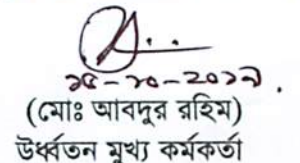 ২৫-১০-২০১৭.
(মোঃ আবদুর রহিম)
উর্ধ্বতন মুখ্য কর্মকর্তা